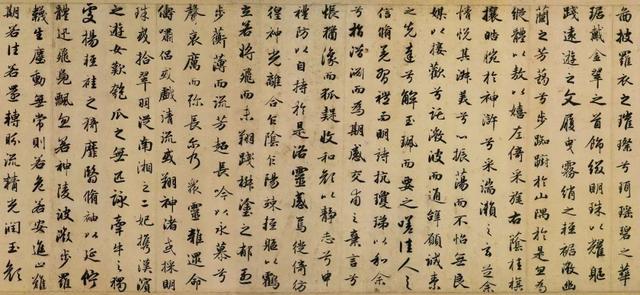 啚披羅衣之璀璨兮珥瑶碧之華
琚戴金翠之首飾綴明珠以耀軀
踐遠遊之文履曳霧綃之輕裾微幽
蘭之芳藹兮步踟蹰於山隅於是忽焉
縱體以敖以嬉左倚采旄右蔭桂旗
攘皓腕於神滸兮采湍瀨之玄芝余
情悅其淑美兮心振蕩而不怡無良
媒以接歡兮託微波而通辭願誠素
之先達兮解玉珮而要之嗟佳人之
信脩羌習禮而明詩抗瓊珶以和余
兮指潛淵而為期感交甫之棄言兮
悵猶豫而狐疑收和顏以静志兮申
禮防以自持於是洛靈感焉徙倚彷
徨神光離合乍陰乍陽竦輕軀以鶴
立若將飛而未翔踐椒塗之郁烈
步蘅薄而流芳超長吟以永慕兮
聲哀厲而弥長尔乃衆靈雜遝命
儔嘯侣或戲清流或翔神渚或採明
珠或拾翠羽從南湘之二妃攜漢濱
之遊女歎匏瓜之無匹詠牽牛之獨
處揚輕袿之猗靡翳脩袖以延佇
體迅飛鳧飄忽若神陵波微步羅
襪生塵動無常則若危若安進止難
期若往若還轉眄流精光潤玉顏